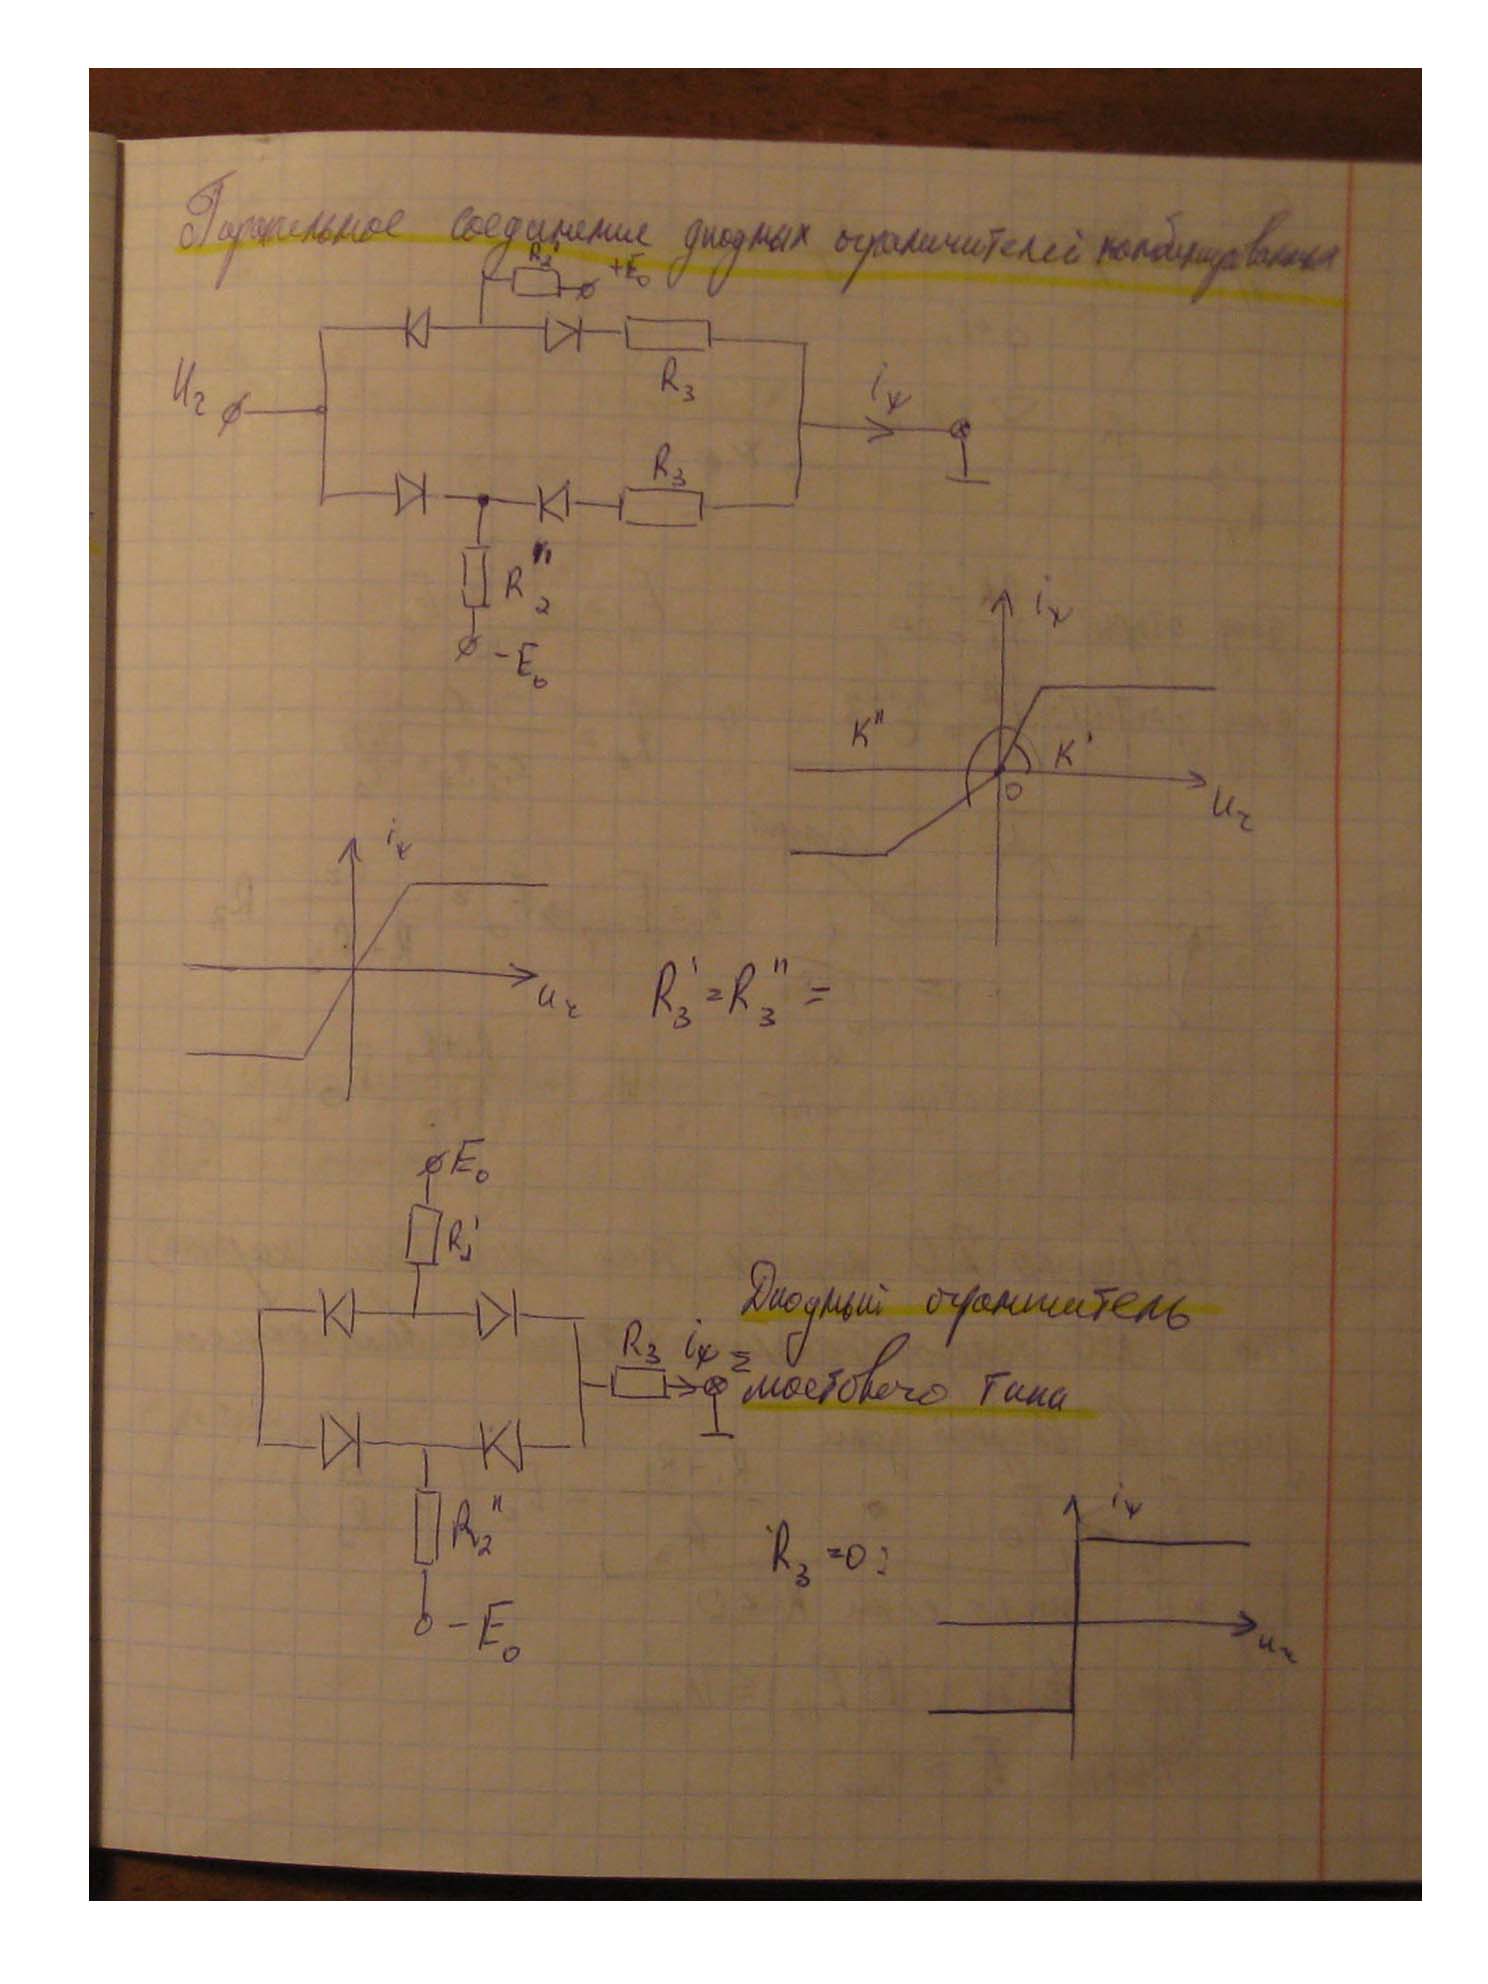 Паралельное соединение диодных ограничителей комбинированных
R₂' +E₀
U₂
R₃
iψ
R₃
R₂"
-E₀
iψ
K" K'
0
U₂
iψ
U₂
R₃' = R₃" =
E₀
R₂'
Диодный ограничитель
R₃ iψ Σ
мостового типа
R₂"
iψ
R₃ = 0:
-E₀
U₂